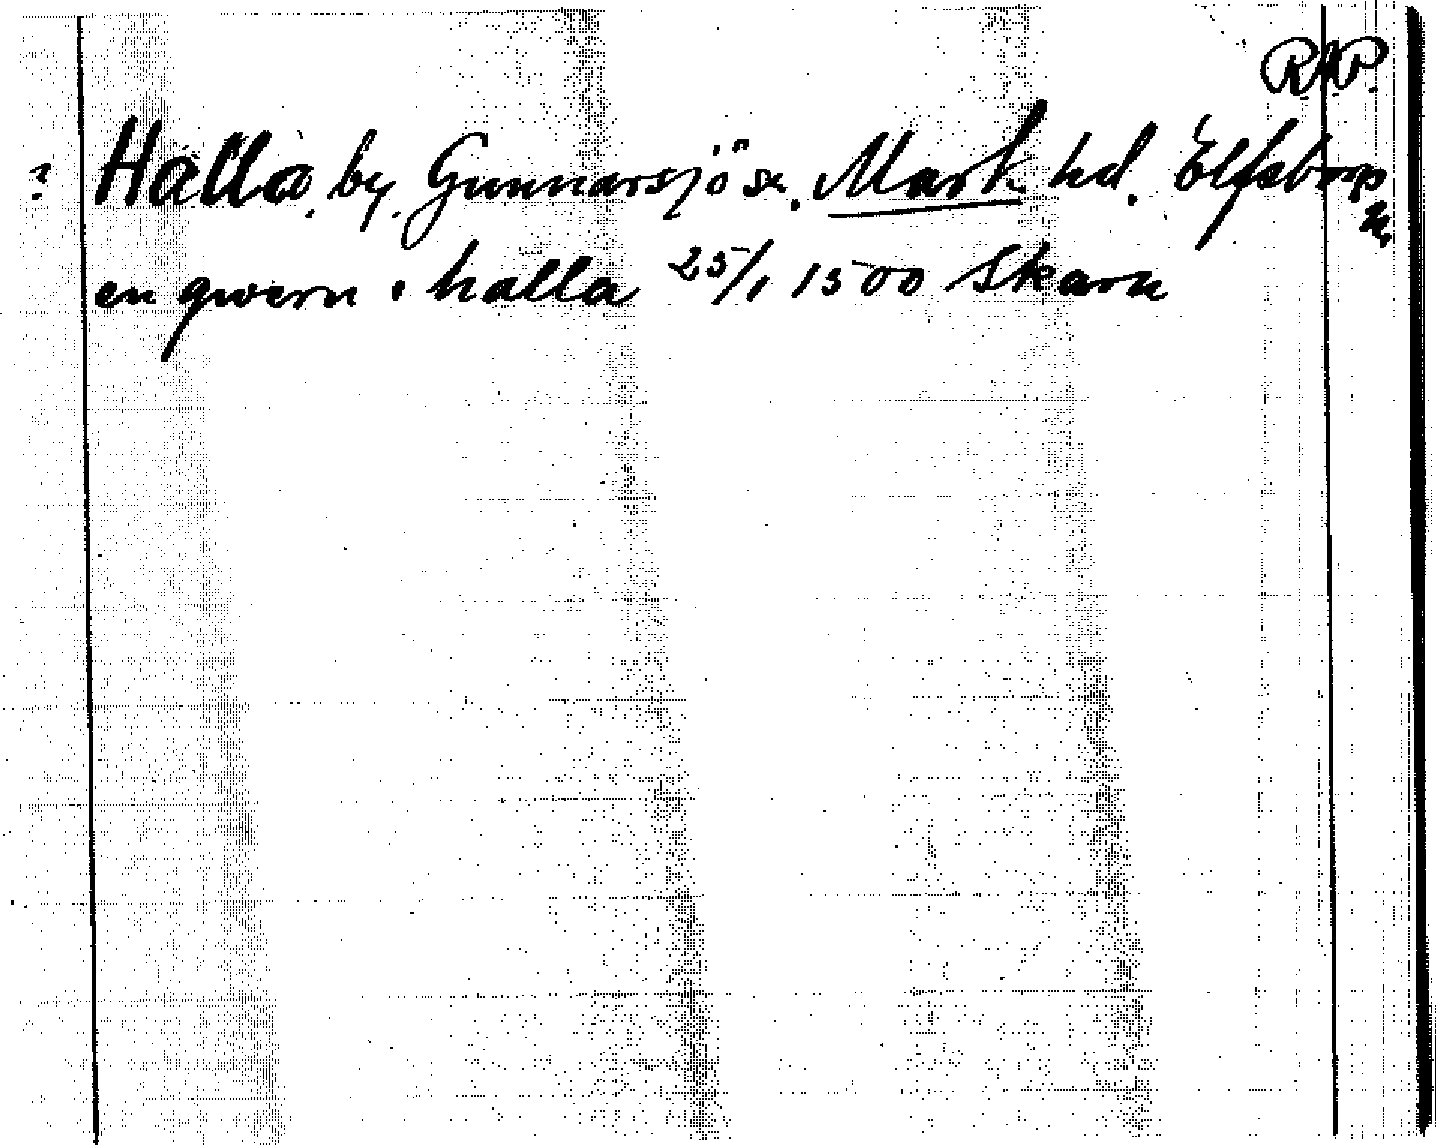 R.A.P.
? Halla, by, Gunnarsjö sn, Mark hd. Elfsborgs
en qwern i halla 25/1 1500 Skara